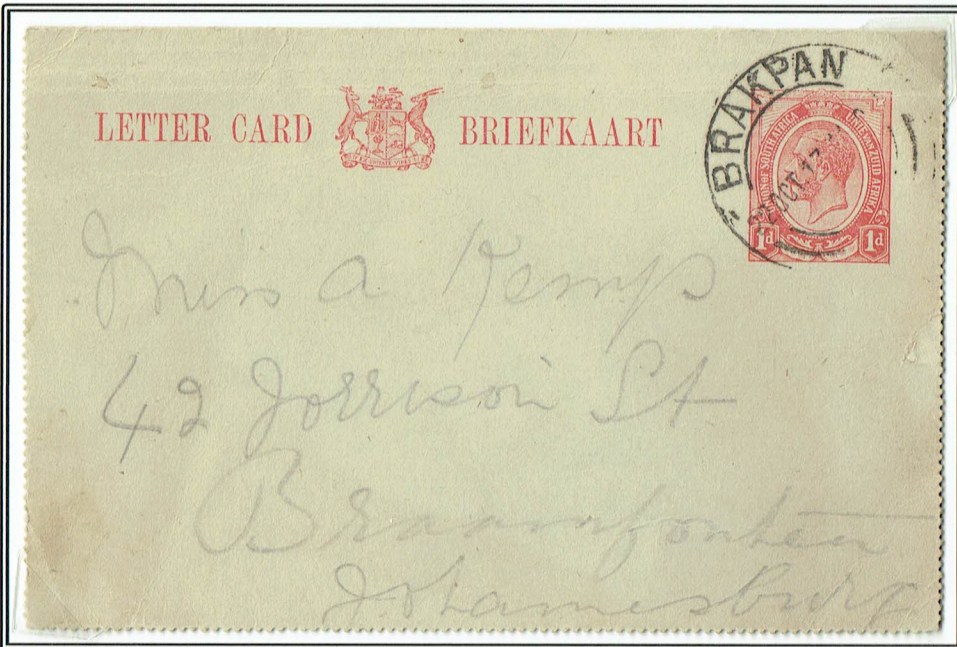 LETTER CARD BRIEFKAART
EX UNITATE VIRES
BRAKPAN
22 OCT 17
UNION OF SOUTH AFRICA UNIE VAN ZUID AFRIKA
1d 1d
Miss A Kemp
42 Jorrison St
Braamfontein
Johannesburg